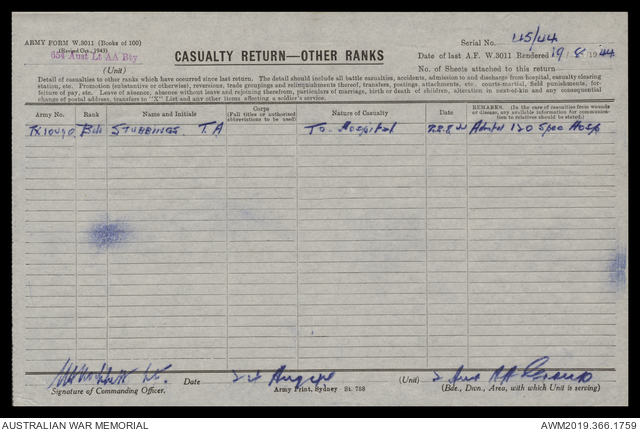 ARMY FORM W.3011 (Books of 100)
(Revised Oct., 1943)
Serial No. 45/44
654 Aust Lt AA Bty
(Unit)
CASUALTY RETURN—OTHER RANKS
Date of last A.F. W.3011 Rendered 19/8/1944
No. of Sheets attached to this return
Detail of casualties to other ranks which have occurred since last return. The detail should include all battle casualties, accidents, admission to and discharge from hospital, casualty clearing
station, etc. Promotion (substantive or otherwise), reversions, trade groupings and remusterings thereof, transfers, postings, attachments, etc. courts-martial, field punishments, for-
feiture of pay, etc. Leave of absence, absence without leave and rejoining therefrom, particulars of marriage, birth or death of children, alteration in next-of-kin and any consequential
change of postal address, transfers to "X" List and any other items affecting a soldier's service.
Army No. Rank Name and Initials Corps (Full titles or authorized abbreviations to be used) Nature of Casualty Date REMARKS. (In the case of casualties from wounds or disease, any available information for communication to relatives should be stated.)
STUBBINGS T. A To Hospital Admitted 120 Spec Hosp
Date 24 August (Unit) 2 Aust AA Group
Signature of Commanding Officer. Army Print, Sydney - St. 788 (Bde., Dvn., Area, with which Unit is serving)
AUSTRALIAN WAR MEMORIAL AWM2019.366.1759